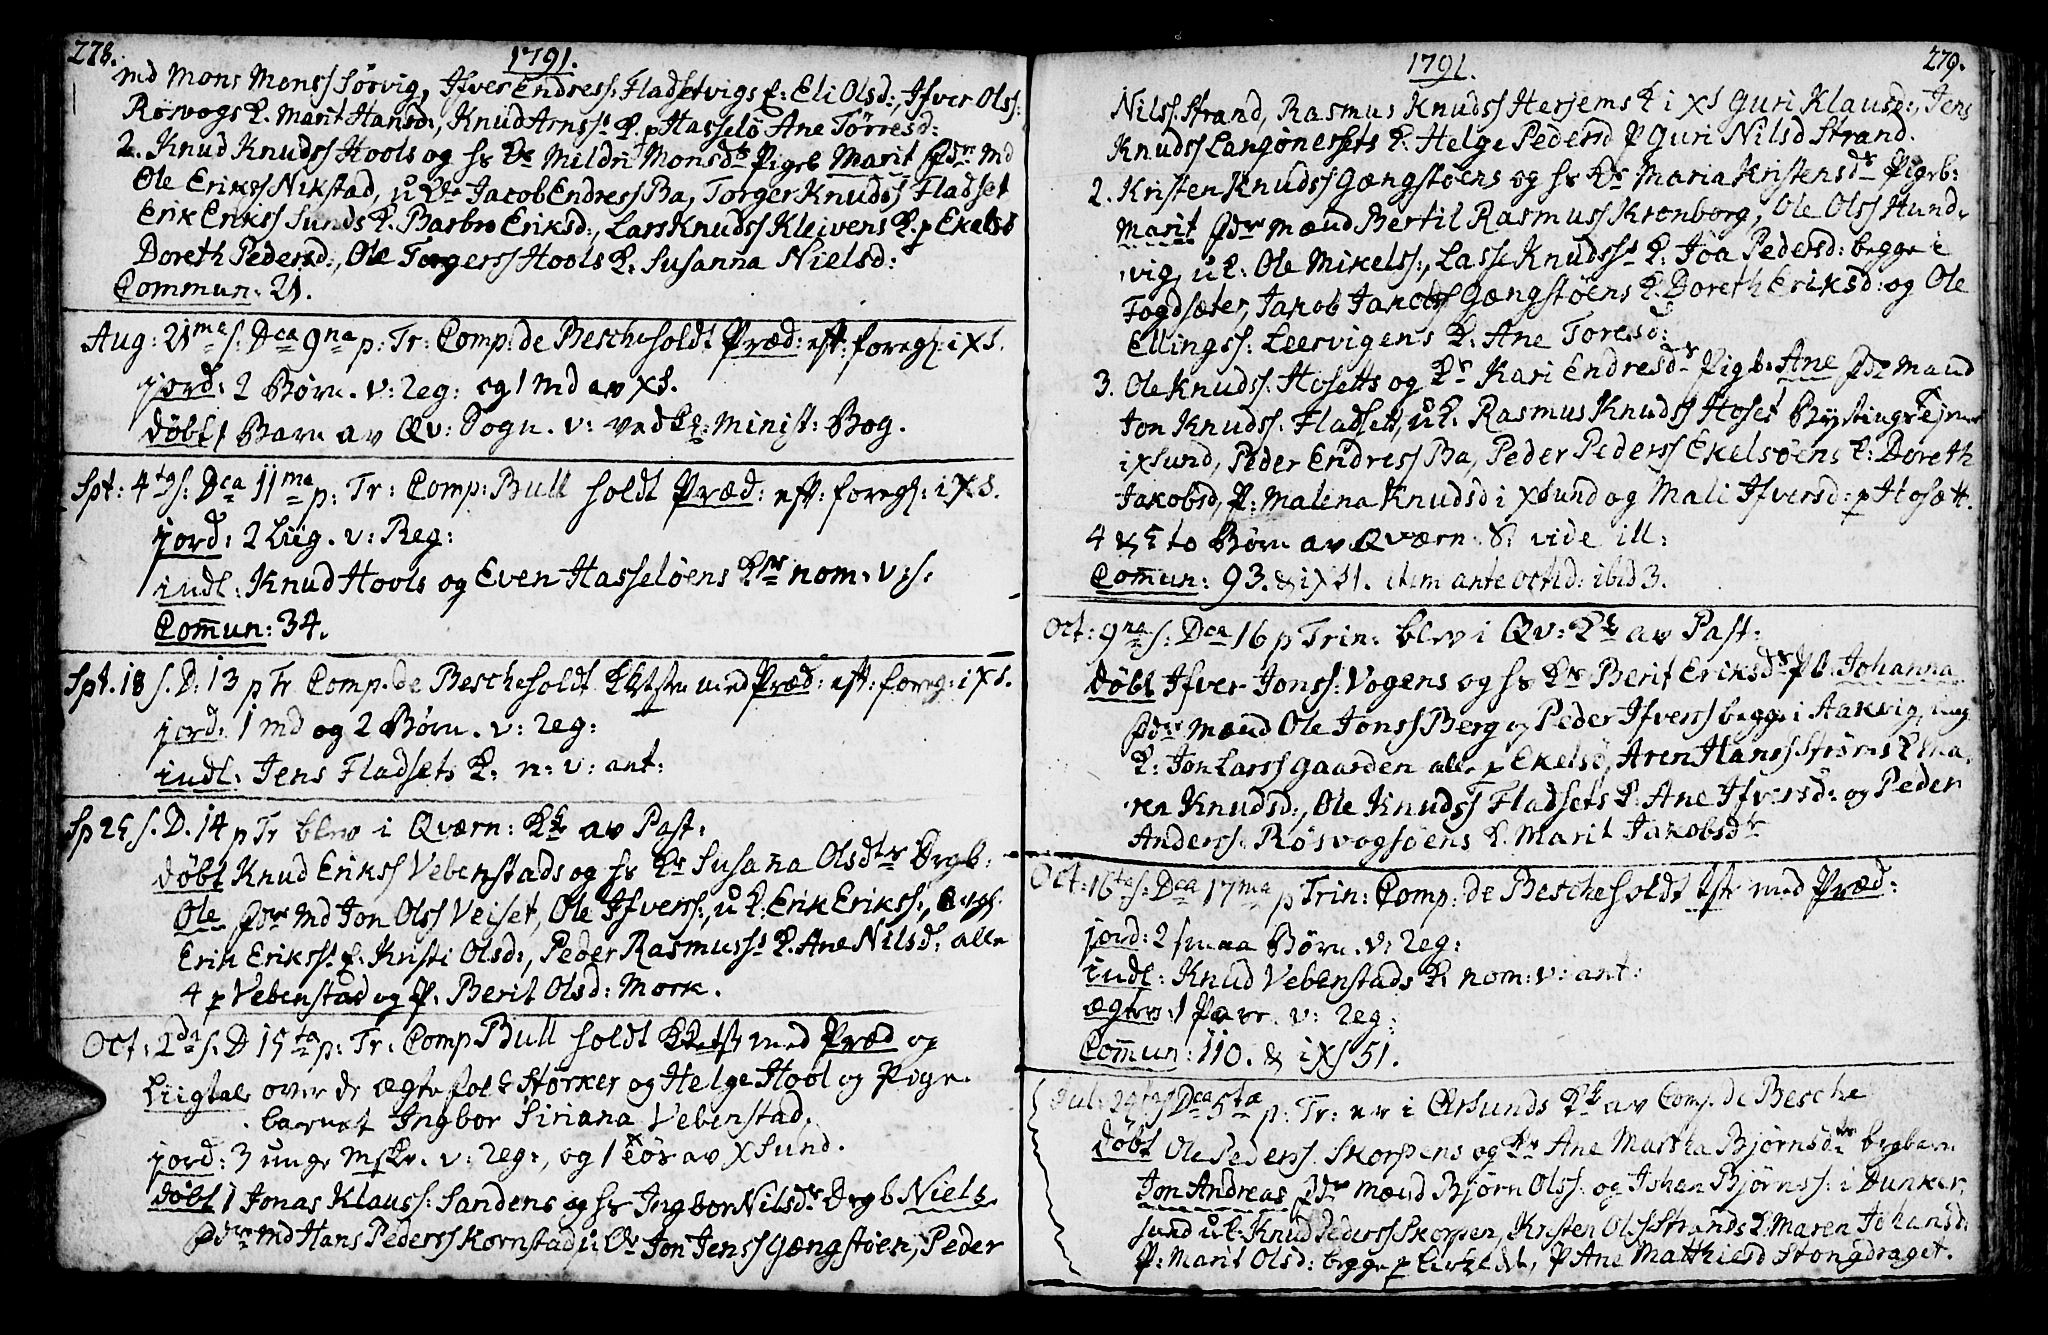 278.
1791.
md Mons Monss Sørvig, Ifver Endress: Fladsetvigs K: Eli Olsd:, Ifver Olss:
Røsvogs K. Marit Hansd:, Knud Arnss: K. p Hasselö Ane Tørresd:
2. Knud Knudss Hools og hs Ks Mildri Monsdr Pigeb Marit fdr md
Ole Erikss Nikstad, u K: Jacob Endress Ba, Torger Knudss Fladset
Erik Erikss Sunds K. Barbro Eriksd:, Lars Knudss Kleivens K. p Ekelsö
Doreth Pedersd:, Ole Torgerss Hools K. Susanna Nielsd:
Commun: 21.
Aug: 21ma s: Dca 9na p: Tr: Comp: de Besche holdt Præd: eft: foreg: i XS.
jord: 2 Børn. v: Reg: og 1 md av XS.
døbt 1 Barn av Qv: Sogn. v: ved K: minist: Bog.
Spt: 4ta s: Dca 11ma p: Tr: Comp: Bull holdt Præd: eft: foreg: i XS.
jord: 2 Liig. v: Reg:
indl: Knud Hools og Even Hasselöens Kr nom: v: s.
Comun: 34.
Spt. 18 s. D: 13 p Tr Comp. de Besche holdt med Præd: eft: foreg: i XS.
jord: 1 md og 2 Børn. v: Reg:
indl: Jens Fladsets K: n: v: ant:
Sp 25 s. D. 14 p Tr blev i Qværn: Kk av Past:
døbt Knud Erikss Vebenstads og hs Ks Susana Olsdtr Drgb:
Ole fdr md Jon Olss Veiset, Ole Ifverss:, u K: Erik Erikss:,
Erik Erikss: K: Kristi Olsd:, Peder Rasmuss: K. Ane Nilsd: alle
4 p Vebenstad og P. Berit Olsd: Mork.
Oct: 2da s: D 15ta p: Tr: Comp Bull holdt med Præd og
Liigtale over de ægtefolk Størker og Helge Hool og Pige
barnet Ingbor Siriana Vebenstad.
jord: 3 unge Msker. v: Reg:, og 1 av XSund.
døbt 1 Jonas Klauss: Sandens og hs Ingbor Nilsdr Drgb Niels
fdr md Hans Pederss Kornstad, u K Jon Jenss Gængstöen, Peder
279.
1791.
Nilss: Strand, Rasmus Knudss Herjems K i XS Guri Klausd:, Jens
Knudss Langönessets K. Helge Pedersd P Guri Nilsd Strand.
2. Kristen Knudss Gængstøens og hs Ks Maria Kristensdr Pigeb:
Marit fdr mænd Bertil Rasmuss Kronborg, Ole Olss Hund-
vig, u K: Ole Mikelss:, Lasse Knudss: K: Joa Pedersd: begge i
Fogdsæter, Jakob Jakobss Gængstöens K. Doreth Eriksd: og Ole
Ellingss: Leervigens K: Ane Toresd:
3. Ole Knudss: Hosetts og Ks Kari Endresdr Pigb. Ane fdr mænd
Jon Knudss: Fladsett, u K. Rasmus Knudss Hoset
i XSund, Peder Endress Ba, Peder Pederss Ekelsöens K: Doreth
Jakobsd, P: Malena Knudsd i XSund og Mali Ifversd: p Hosætt.
4 & 5 to Børn av Qværn: S: vide ill:
Comun: 93. & i XS 1. item ante octid: ibid 3.
Oct: 9na s: Dca 16 p Trin: blev i Qv: Kk av Past:
døbt Ifver Jonss: Vogens og hs Ks Berit Eriksdr Pb. Johanna
fdr mænd Ole Jonss Berg og Peder Ifverss begge i Aakvig, ung
K: Jon Larss Gaarden alle p Ekelsö, Aren Hanss Strøms K Ma-
ren Knudsd:, Ole Knudss Fladsets K. Ane Ifversd: og Peder
Anderss: Røsvogsöens K. Marit Jakobsdr
Oct: 16ta s: Dca 17ma p Trin: Comp: de Besche holdt med Præd:
jord: 2 smaa Børn. v: Reg:
indl: Knud Vebenstads K: nom: v: ant:
ægtev: 1 Par. v: Reg:
Comun: 110. & i XS 51.
Jul: 24ta s: Dca 5ta p: Tr: er i Qrsunds Kk av Comp. de Besche
døbt Ole Pederss. Skorpens og Ks Ane Martha Bjørnsdtr drgbarn
Jon Andreas fdr mænd Bjørn Olss: og Johan Bjørnss: i Dunker-
sund u K: Knud Pederss Skorpen, Kristen Olss Strands K. Maren Johansd:
P: Marit Olsd: begge p , P Ane Matthiesd Stongdraget.